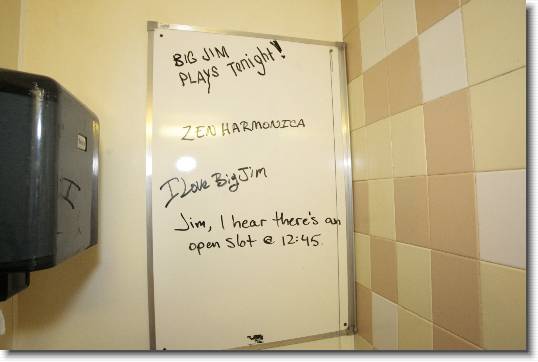 BIG JIM
PLAYS Tonight!
ZEN HARMONICA
I Love Big Jim
Jim, I hear there's an
open slot @ 12:45.